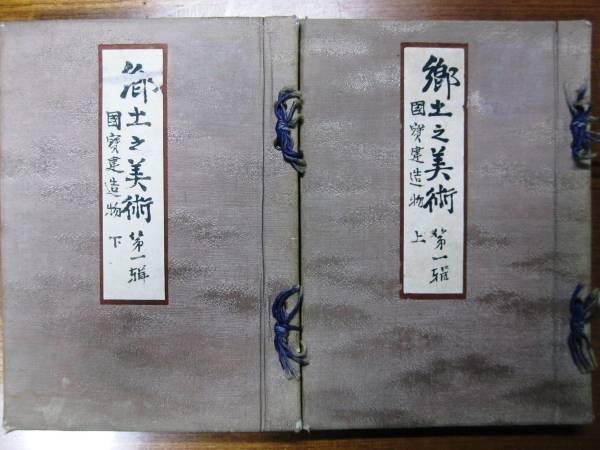 鄕土之美術
國寶建造物
第一輯
上
鄕土之美術
國寶建造物
第一輯
下